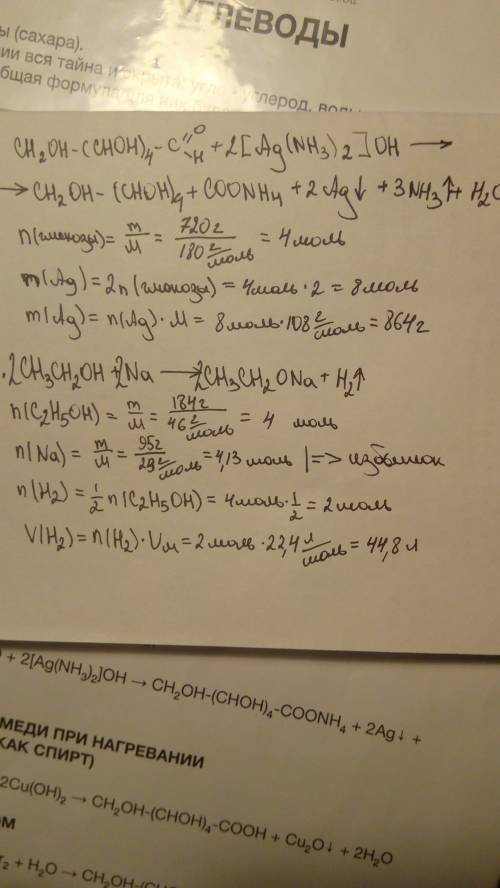 УГЛЕВОДЫ
(сахара).
вся тайна и
CH₂OH-(CHOH)₄-C=O H + 2[Ag(NH₃)₂]OH →
→ CH₂OH-(CHOH)₄ + COONH₄ + 2Ag↓ + 3NH₃↑ + H₂O
n(глюкозы) = m/M = 720г/180 г/моль = 4 моль
m(Ag) = 2n(глюкозы) = 4моль·2 = 8моль
m(Ag) = n(Ag)·M = 8 моль·108 г/моль = 864г
2CH₃CH₂OH + 2Na → 2CH₃CH₂ONa + H₂↑
n(C₂H₅OH) = m/M = 184г/46 г/моль = 4 моль
n(Na) = m/M = 95г/23 г/моль = 4,13 моль |=> избыток
n(H₂) = 1/2 n(C₂H₅OH) = 4моль·1/2 = 2моль
V(H₂) = n(H₂)·Vм = 2моль·22,4 л/моль = 44,8 л
+ 2[Ag(NH₃)₂]OH → CH₂OH-(CHOH)₄-COONH₄ + 2Ag↓ +
МЕДИ ПРИ НАГРЕВАНИИ
КАК СПИРТ)
2Cu(OH)₂ → CH₂OH-(CHOH)₄-COOH + Cu₂O↓ + 2H₂O
+ H₂O → CH₂OH-(CH